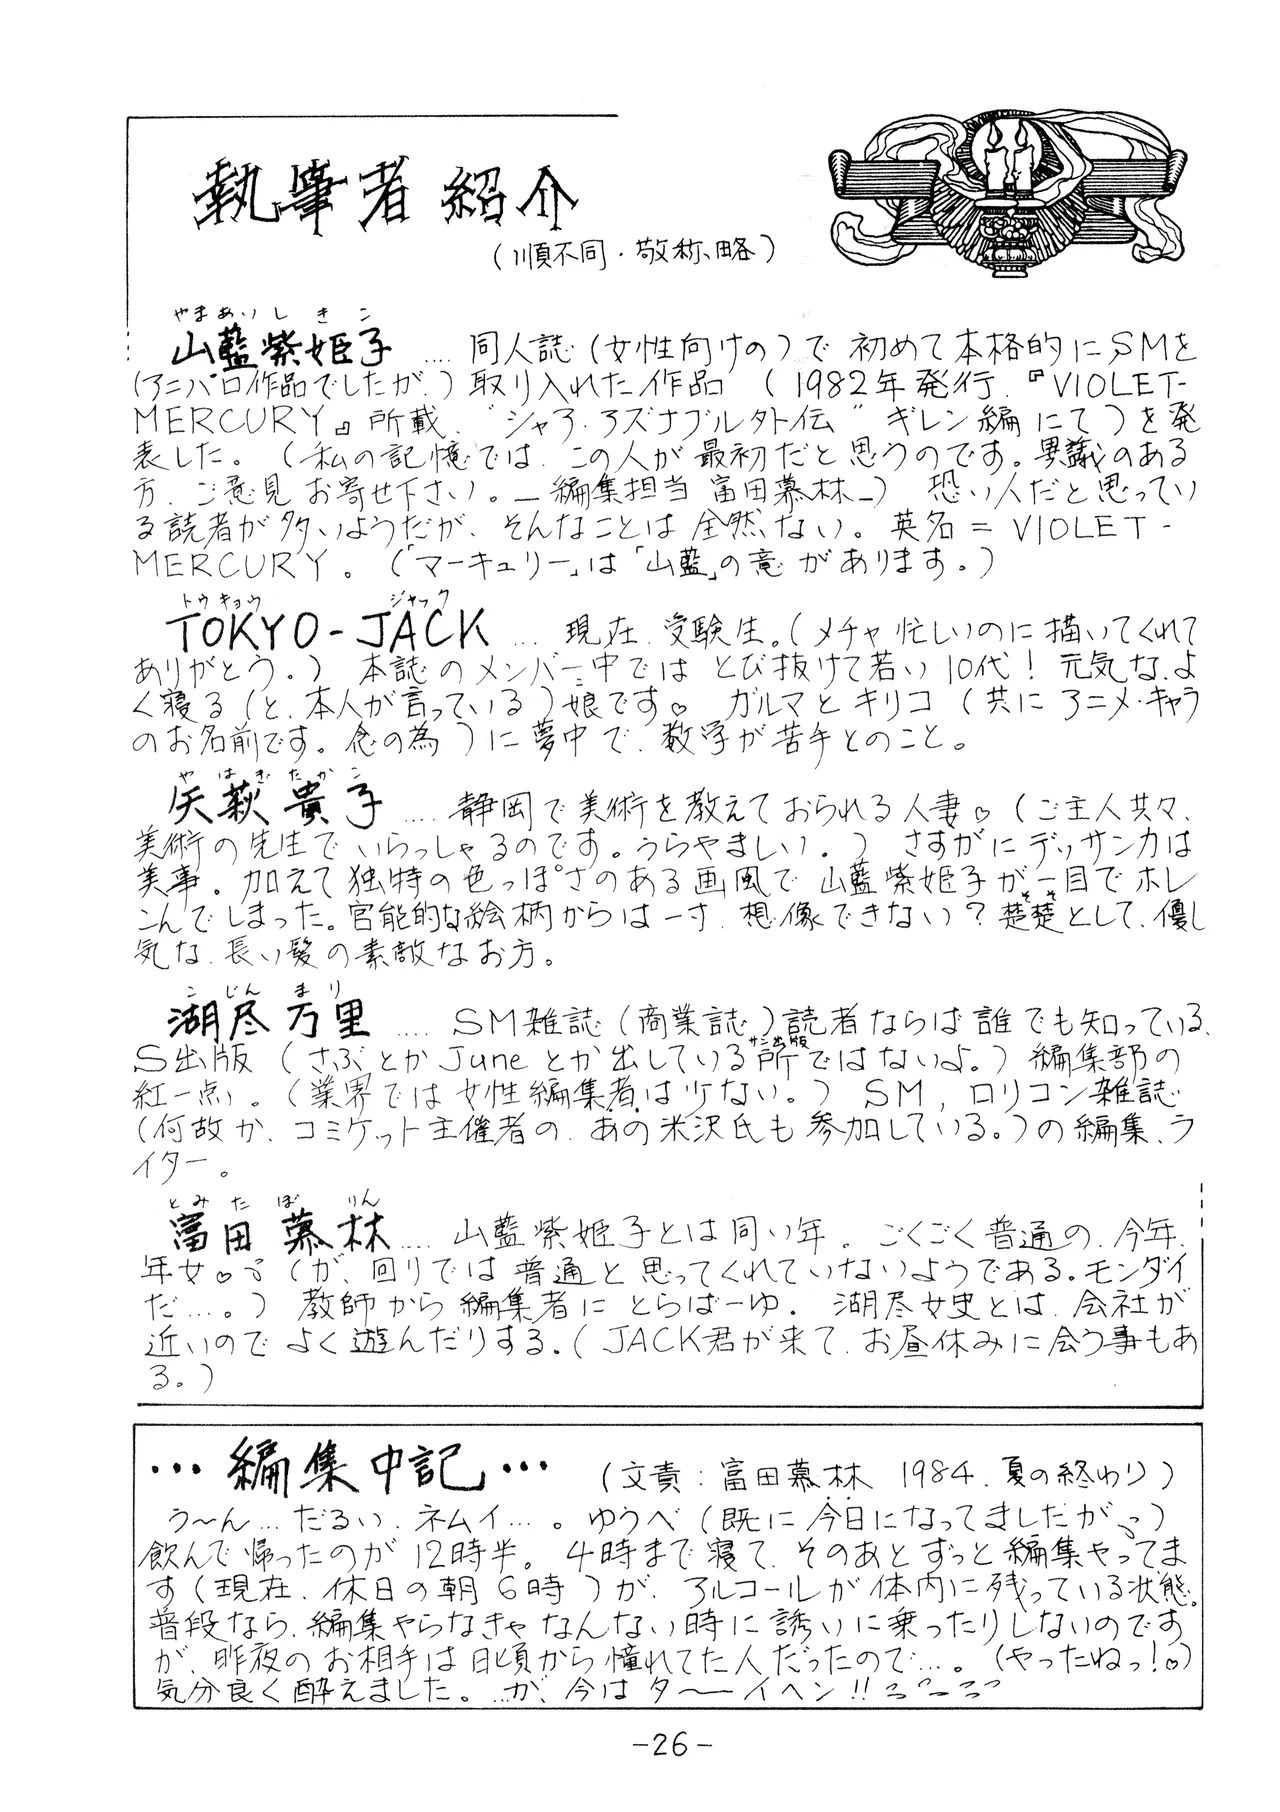 執筆者紹介
(順不同・敬称略)
やまあいしきこ
山藍紫姫子 .... 同人誌(女性向けの)で初めて本格的にSMを
(アニパロ作品でしたが、)取り入れた作品 (1982年発行、『VIOLET-
MERCURY』所載、"シャア・アズナブル外伝" ギレン編にて)を発
表した。(私の記憶では、この人が最初だと思うのです。異議のある
方、ご意見お寄せ下さい。—編集担当 富田慕林—) 恐い人だと思ってい
る読者が多いようだが、そんなことは全然ない。英名=VIOLET-
MERCURY。(「マーキュリー」は「山藍」の意があります。)
トウキョウ ジャック
TOKYO-JACK .... 現在、受験生。(メチャ忙しいのに描いてくれて
ありがとう。) 本誌のメンバー中ではとび抜けて若い10代! 元気な、よ
く寝る(と、本人が言っている)娘です♡ ガルマとキリコ(共にアニメ・キャラ
のお名前です。念の為)に夢中で、数学が苦手とのこと。
やはぎたかこ
矢萩貴子 .... 静岡で美術を教えておられる人妻♡(ご主人共々、
美術の先生でいらっしゃるのです。うらやましい。) さすがにデッサン力は
美事。加えて独特の色っぽさのある画風で山藍紫姫子が一目でホレ
こんでしまった。官能的な絵柄からは一寸、想像できない?楚楚(そそ)として、優し
気な、長い髪の素敵なお方。
こじん まり
湖尽万里 .... SM雑誌(商業誌)読者ならば誰でも知っている、
S出版 (さぶとかJuneとか出している所(サン出版)ではないよ。) 編集部の
紅一点。(業界では女性編集者は少ない。) SM、ロリコン雑誌
(何故か、コミケット主催者の、あの米沢氏も参加している。)の編集、ラ
イター。
とみた ぼりん
富田慕林 .... 山藍紫姫子とは同い年。ごくごく普通の、今年、
年女♡。(が、回りでは普通と思ってくれていないようである。モンダイ
だ...。) 教師から編集者にとらばーゆ。湖尽女史とは、会社が
近いのでよく遊んだりする。(JACK君が来て、お昼休みに会う事もあ
る。)
...編集中記...
(文責:富田慕林 1984、夏の終わり)
う〜ん...だるい、ネムイ...。ゆうべ(既に今日になってましたが)
飲んで帰ったのが12時半。4時まで寝て、そのあとずっと編集やってま
す(現在、休日の朝6時)が、アルコールが体内に残っている状態。
普段なら、編集やらなきゃなんない時に誘いに乗ったりしないのです
が、昨夜のお相手は日頃から憧れてた人だったので...。(やったねっ!♡)
気分良く酔えました。...が、今はタ〜〜イヘン!!
-26-